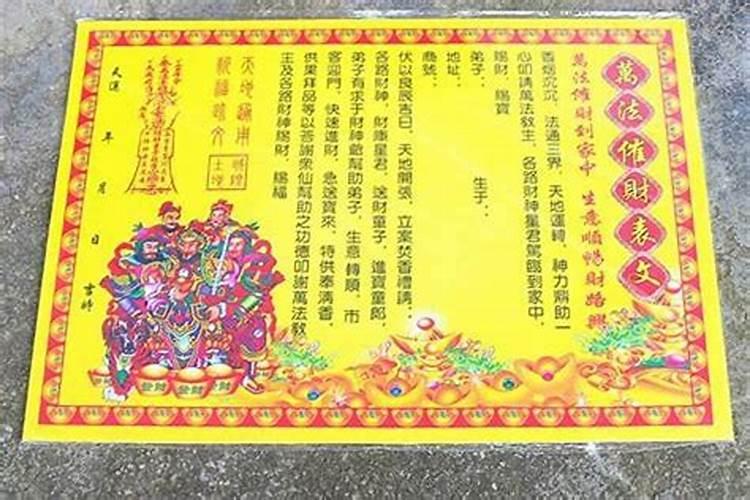 萬法催財表文
萬法催財到家中 生意順暢財路興
香烟沉沉、法通三界、天地運轉、神力鼎助一
心叩請萬法教主、各路財神星君駕臨到家中、
賜財、賜寶
弟子： 生于：
地址：
商號：
伏以良辰吉日、天地開張、立案焚香禮請：
各路財神、財庫星君、送財童子、進寶童郎、
弟子有求于財神爺幫助弟子、生意轉順、市
客迎門、快速進財、急送寶來、特供奉清香、
供果拜品等以答謝衆仙幫助之功德叩謝萬法教
主及各路財神賜財、賜福
天運 年 月 日 吉時
發財 發財 發財